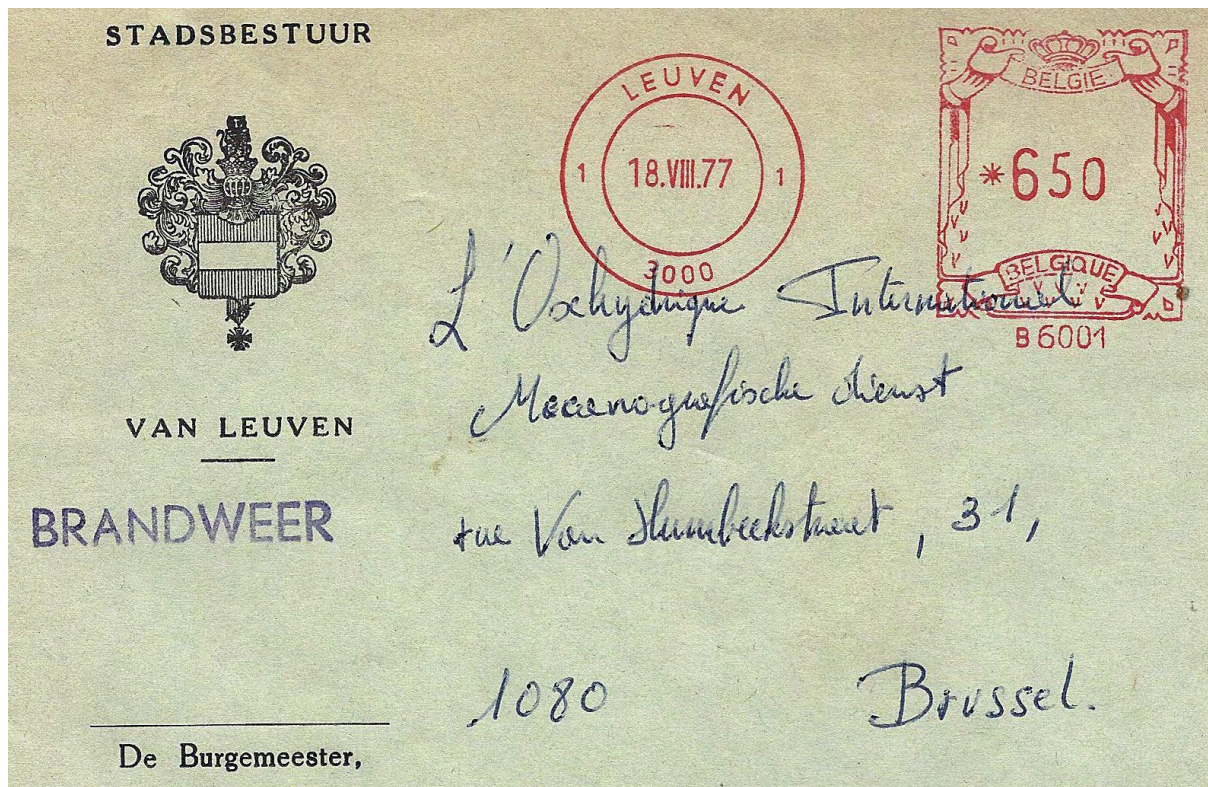 STADSBESTUUR
VAN LEUVEN
BRANDWEER
De Burgemeester,
LEUVEN
1 18.VIII.77 1
3000
BELGIE
*650
BELGIQUE
B6001
L'Oxhydrique International
Mecanografische dienst
rue Van Humbeekstraat, 31,
1080 Brussel.